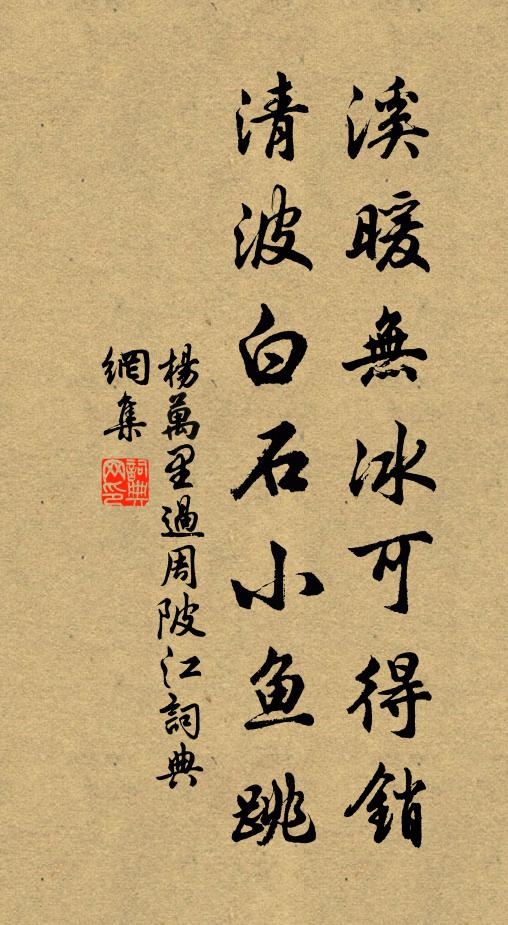 溪暖無冰可得銷
清波白石小鱼跳
楊萬里過周陂江詞典
網集
詞典網印